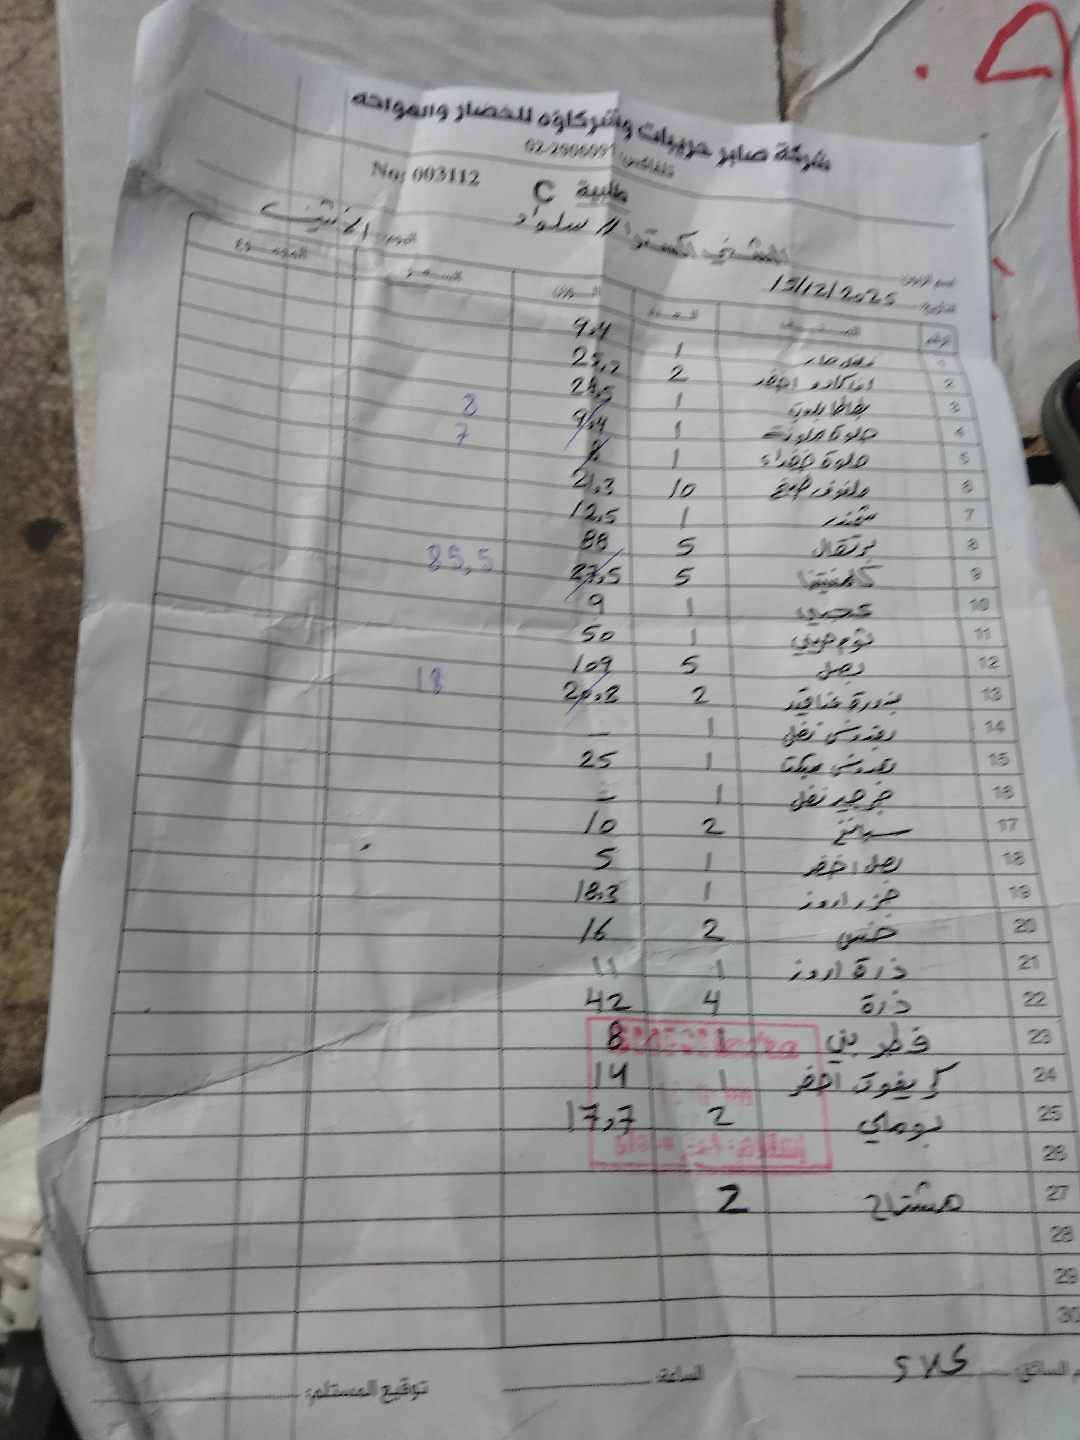 شركة صابر حريبات وشركاؤه للخضار والفواكه
تلفاكس: 02-2906091
No: 003112 طلبية C
اسم الزبون
اليوم: الاثنين
التاريخ: 15/12/2025
الرقم الصنف العدد الوزن السعر المجموع
1 1 9.4
2 افوكادو اخضر 2 25.2
3 بطاطا 1 28.5
4 حلوة ملونة 1 9.4 8
5 حلوة خضراء 1 8 7
6 ملفوف 10 21.3
7 شمندر 1 12.5
8 برتقال 5 88
9 كلمنتينا 5 27.5 25,5
10 1 9
11 ثوم 1 50
12 بصل 5 109
13 بندورة عناقيد 2 20.2 18
14 بقدونس نفل 1 –
15 بقدونس 1 25
16 جرجير نفل 1 –
17 سبانخ 2 10
18 بصل اخضر 1 5
19 جزر اروز 1 18.3
20 خس 2 16
21 ذرة اروز 1 11
22 ذرة 4 42
23 فطر بني 1 8
24 كريفوت اخضر 1 14
25 بوملي 2 17,7
26
27 مشتاح 2
28
29
30
السائق:
الساعة:
توقيع المستلم: